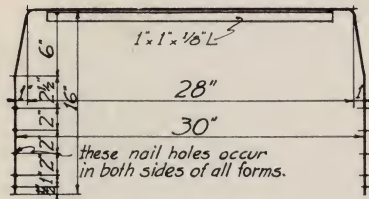 1" x 1" x 1/8" L
6"
1"
2½"
16"
28"
1"
2"
30"
2"
2"
these nail holes occur
in both sides of all forms.
1"